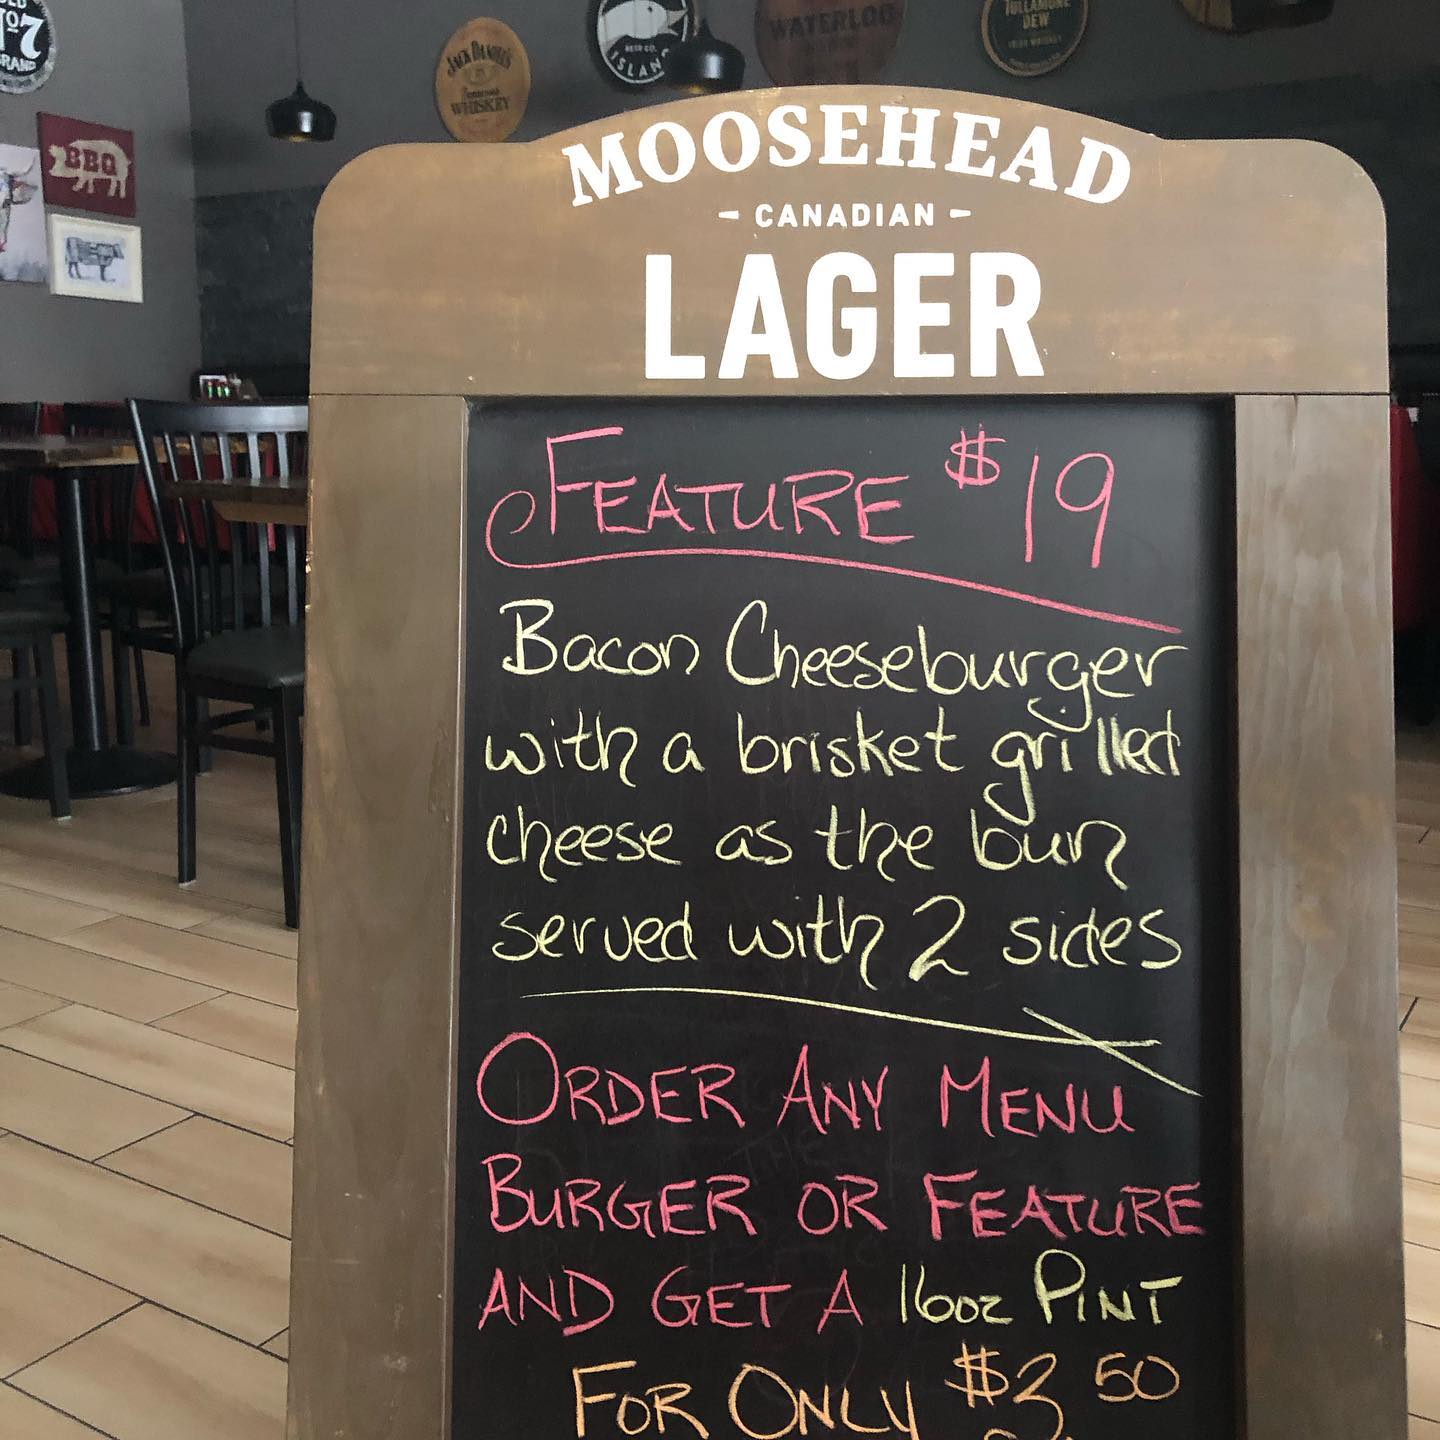 No. 7
BRAND
JACK DANIEL'S
Tennessee
WHISKEY
BEER CO.
ISLAND
WATERLOO
TULLAMORE
DEW
IRISH WHISKEY
BBQ
MOOSEHEAD
- CANADIAN -
LAGER
FEATURE $19
Bacon Cheeseburger
with a brisket grilled
cheese as the bun
served with 2 sides
ORDER ANY MENU
BURGER OR FEATURE
AND GET A 16oz PINT
FOR ONLY $3.50